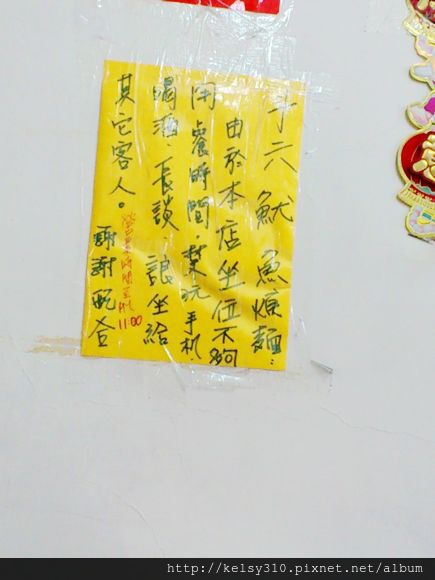 十六魷魚焿麵：
由於本店坐位不夠
用餐時間.禁玩手机
喝酒.長談.讓坐給
其它客人。謝謝配合
營業時間至PM11:00
http://kelsy310.pixnet.net/album